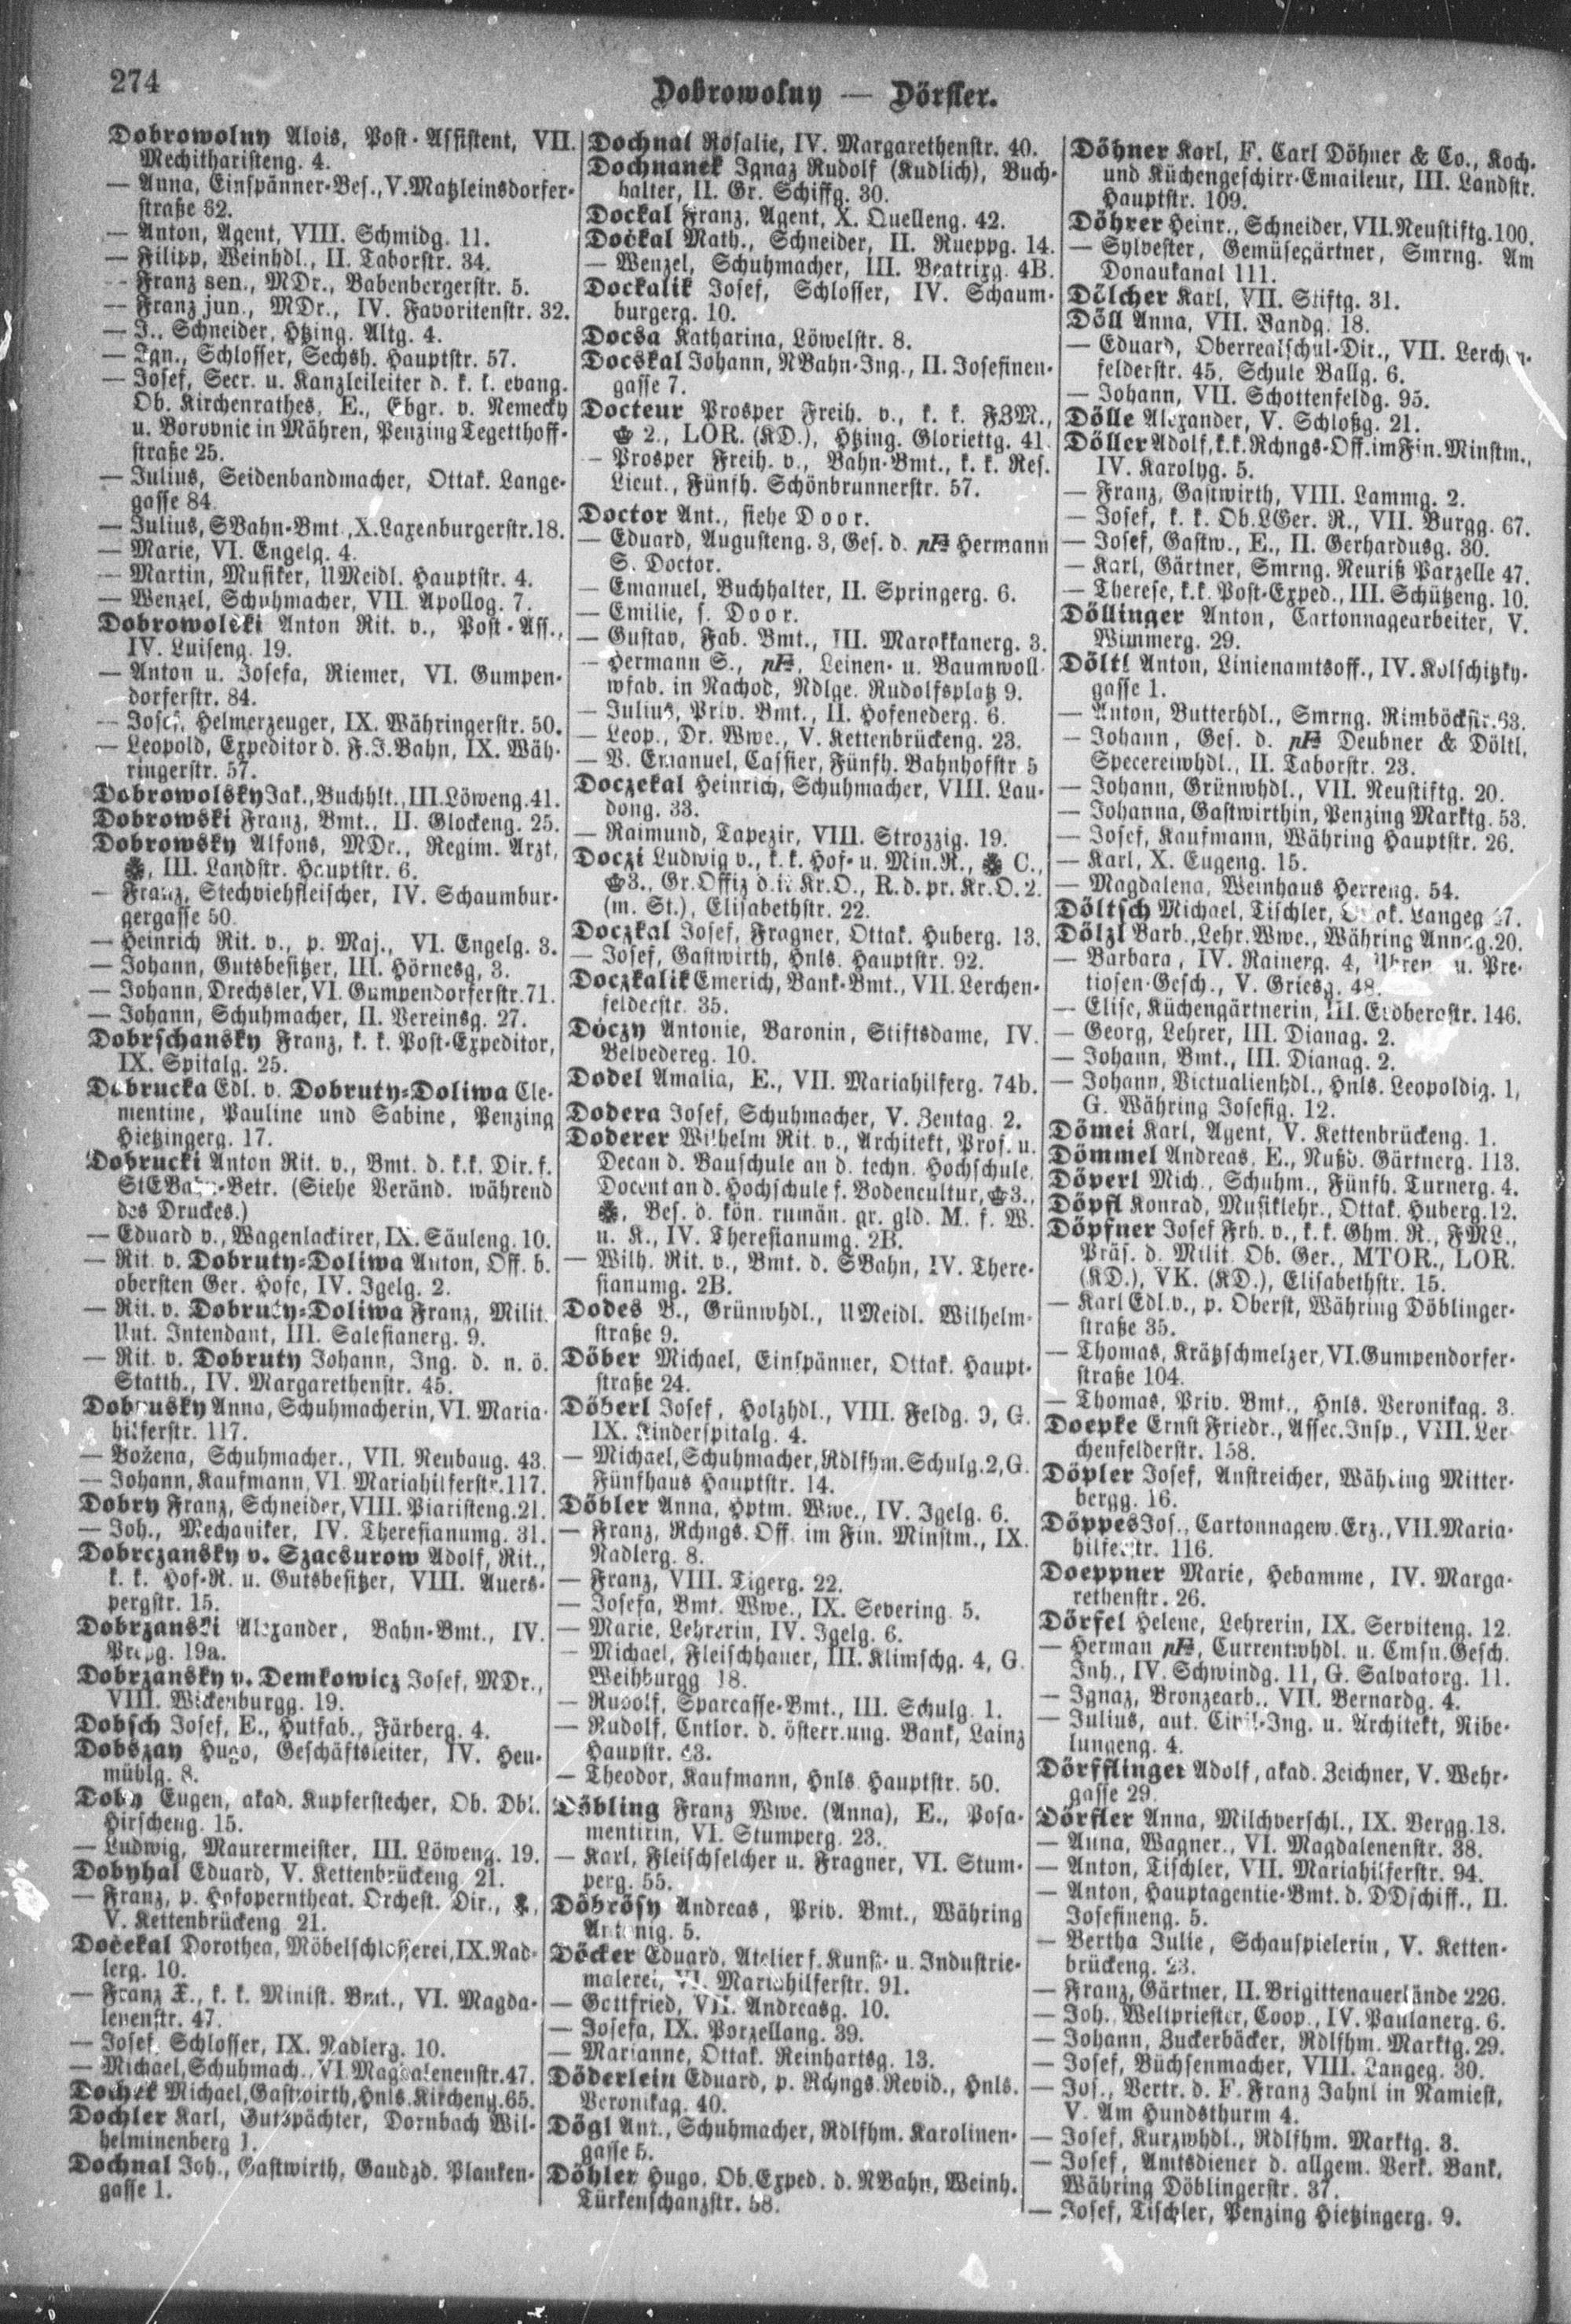 274
Dobrowolny — Dörfler.
Dobrowolny Alois, Post-Assistent, VII.
Mechitharisteng. 4.
— Anna, Einspänner-Bes., V. Matzleinsdorfer-
straße 62.
— Anton, Agent, VIII. Schmidg. 11.
— Filipp, Weinhdl., II. Taborstr. 34.
— Franz sen., MDr., Babenbergerstr. 5.
— Franz jun., MDr., IV. Favoritenstr. 32.
— J., Schneider, Htzing. Altg. 4.
— Ign., Schlosser, Sechsh. Hauptstr. 57.
— Josef, Secr. u. Kanzleileiter d. k. k. evang.
Ob. Kirchenrathes, E., Ebgr. v. Nemecky
u. Borovnic in Mähren, Penzing Tegetthoff-
straße 25.
— Julius, Seidenbandmacher, Ottak. Lange-
gasse 84.
— Julius, SBahn-Bmt., X. Laxenburgerstr. 18.
— Marie, VI. Engelg. 4.
— Martin, Musiker, UMeidl. Hauptstr. 4.
— Wenzel, Schuhmacher, VII. Apollog. 7.
Dobrowolski Anton Rit. v., Post-Ass.,
IV. Luiseng. 19.
— Anton u. Josefa, Riemer, VI. Gumpen-
dorferstr. 84.
— Josef, Helmerzeuger, IX. Währingerstr. 50.
— Leopold, Expeditor d. F. J. Bahn, IX. Wäh-
ringerstr. 57.
Dobrowolsky Jak., Buchhlt., III. Löweng. 41.
Dobrowski Franz, Bmt., II. Glockeng. 25.
Dobrowsky Alfons, MDr., Regim. Arzt,
, III. Landstr. Hauptstr. 6.
— Franz, Stechviehfleischer, IV. Schaumbur-
gergasse 50.
— Heinrich Rit. v., p. Maj., VI. Engelg. 3.
— Johann, Gutsbesitzer, III. Hörnesg. 3.
— Johann, Drechsler, VI. Gumpendorferstr. 71.
— Johann, Schuhmacher, II. Vereinsg. 27.
Dobrschansky Franz, k. k. Post-Expeditor,
IX. Spitalg. 25.
Dobrucka Edl. v. Dobruty-Doliwa Cle-
mentine, Pauline und Sabine, Penzing
Hietzingerg. 17.
Dobrucki Anton Rit. v., Bmt. d. k. k. Dir. f.
StEBahn-Betr. (Siehe Veränd. während
des Druckes.)
— Eduard v., Wagenlackirer, IX. Säuleng. 10.
— Rit. v. Dobruty-Doliwa Anton, Off. b.
obersten Ger. Hofe, IV. Igelg. 2.
— Rit. v. Dobruty-Doliwa Franz, Milit.
Unt. Intendant, III. Salesianerg. 9.
— Rit. v. Dobruty Johann, Ing. d. n. ö.
Statth., IV. Margarethenstr. 45.
Dobrusky Anna, Schuhmacherin, VI. Maria-
hilferstr. 117.
— Božena, Schuhmacher., VII. Neubaug. 43.
— Johann, Kaufmann, VI. Mariahilferstr. 117.
Dobry Franz, Schneider, VIII. Piaristeng. 21.
— Joh., Mechaniker, IV. Theresianumg. 31.
Dobrczansky v. Szacsurow Adolf, Rit.,
k. k. Hof-R. u. Gutsbesitzer, VIII. Auers-
pergstr. 15.
Dobrzanski Alexander, Bahn-Bmt., IV.
Preßg. 19a.
Dobrzansky v. Demkowicz Josef, MDr.,
VIII. Wickenburgg. 19.
Dobsch Josef, E., Hutfab., Färberg. 4.
Dobszay Hugo, Geschäftsleiter, IV. Heu-
mühlg. 8.
Doby Eugen, akad. Kupferstecher, Ob. Dbl.
Hirscheng. 15.
— Ludwig, Maurermeister, III. Löweng. 19.
Dobyhal Eduard, V. Kettenbrückeng. 21.
— Franz, p. Hofoperntheat. Orchest. Dir.,
V. Kettenbrückeng. 21.
Dočekal Dorothea, Möbelschlosserei, IX. Nad-
lerg. 10.
— Franz X., k. k. Minist. Bmt., VI. Magda-
lenenstr. 47.
— Josef, Schlosser, IX. Nadlerg. 10.
— Michael, Schuhmach., VI. Magdalenenstr. 47.
Michael, Gastwirth, Hnls. Kircheng. 65.
Dochler Karl, Gutspächter, Dornbach Wil-
helminenberg 1.
Dochnal Joh., Gastwirth, Gaudzd. Planken-
gasse 1.
Dochnal Rosalie, IV. Margarethenstr. 40.
Dochnanek Ignaz Rudolf (Kudlich), Buch-
halter, II. Gr. Schiffg. 30.
Dockal Franz, Agent, X. Quelleng. 42.
Dočkal Math., Schneider, II. Rueppg. 14.
— Wenzel, Schuhmacher, III. Beatrixg. 4B.
Dockalik Josef, Schlosser, IV. Schaum-
burgerg. 10.
Docsa Katharina, Löwelstr. 8.
Docskal Johann, NBahn-Ing., II. Josefinen-
gasse 7.
Docteur Prosper Freih. v., k. k. FZM.,
2., LOR. (KD.), Htzing. Gloriettg. 41.
— Prosper Freih. v., Bahn-Bmt., k. k. Res.
Lieut., Fünfh. Schönbrunnerstr. 57.
Doctor Ant., siehe Door.
— Eduard, Augusteng. 3, Ges. d. Hermann
S. Doctor.
— Emanuel, Buchhalter, II. Springerg. 6.
— Emilie, s. Door.
— Gustav, Fab. Bmt., III. Marokkanerg. 3.
— Hermann S., Leinen- u. Baumwoll-
wfab. in Nachod, Ndlge. Rudolfsplatz 9.
— Julius, Priv. Bmt., II. Hofenederg. 6.
— Leop., Dr. Wwe., V. Kettenbrückeng. 23.
— V. Emanuel, Cassier, Fünfh. Bahnhofstr. 5
Doczekal Heinrich, Schuhmacher, VIII. Lau-
dong. 33.
— Raimund, Tapezir, VIII. Strozzig. 19.
Doczi Ludwig v., k. k. Hof- u. Min. R., C.,
3., Gr. Offiz. d. it. Kr. O., R. d. pr. Kr. O. 2.
(m. St.), Elisabethstr. 22.
Doczkal Josef, Fragner, Ottak. Huberg. 13.
— Josef, Gastwirth, Hnls. Hauptstr. 92.
Doczkalik Emerich, Bank-Bmt., VII. Lerchen-
felderstr. 35.
Dóczy Antonie, Baronin, Stiftsdame, IV.
Belvedereg. 10.
Dodel Amalia, E., VII. Mariahilferg. 74b.
Dodera Josef, Schuhmacher, V. Zentag. 2.
Doderer Wilhelm Rit. v., Architekt, Prof. u.
Decan d. Bauschule an d. techn. Hochschule,
Docent an d. Hochschule f. Bodencultur, 3.,
, Bes. d. kön. rumän. gr. gld. M. f. W.
u. K., IV. Theresianumg. 2B.
— Wilh. Rit. v., Bmt. d. SBahn, IV. There-
sianumg. 2B.
Dodes B., Grünwhdl., UMeidl. Wilhelm-
straße 9.
Döber Michael, Einspänner, Ottak. Haupt-
straße 24.
Döberl Josef, Holzhdl., VIII. Feldg. 9, G.
IX. Kinderspitalg. 4.
— Michael, Schuhmacher, Rdlfhm. Schulg. 2, G.
Fünfhaus Hauptstr. 14.
Döbler Anna, Hptm. Wwe., IV. Igelg. 6.
— Franz, Rchngs. Off. im Fin. Minstm., IX.
Nadlerg. 8.
— Franz, VIII. Tigerg. 22.
— Josefa, Bmt. Wwe., IX. Severing. 5.
— Marie, Lehrerin, IV. Igelg. 6.
— Michael, Fleischhauer, III. Klimschg. 4, G.
Weihburgg. 18.
— Rudolf, Sparcasse-Bmt., III. Schulg. 1.
— Rudolf, Cntlor. d. österr. ung. Bank, Lainz
Haupstr.
— Theodor, Kaufmann, Hnls. Hauptstr. 50.
Döbling Franz Wwe. (Anna), E., Posa-
mentirin, VI. Stumperg. 23.
— Karl, Fleischselcher u. Fragner, VI. Stum-
perg. 55.
Döbrösy Andreas, Priv. Bmt., Währing
Antonig. 5.
Döcker Eduard, Atelier f. Kunst- u. Industrie-
malerei, VI. Mariahilferstr. 91.
— Gottfried, VII. Andreasg. 10.
— Josefa, IX. Porzellang. 39.
— Marianne, Ottak. Reinhartsg. 13.
Döderlein Eduard, p. Rchngs. Revid., Hnls.
Veronikag. 40.
Dögl Ant., Schuhmacher, Rdlfhm. Karolinen-
gasse 5.
Döhler Hugo, Ob. Exped. d. NBahn, Weinh.
Türkenschanzstr. 58.
Döhner Karl, F. Carl Döhner & Co., Koch-
und Küchengeschirr-Emaileur, III. Landstr.
Hauptstr. 109.
Döhrer Heinr., Schneider, VII. Neustiftg. 100.
— Sylvester, Gemüsegärtner, Smrng. Am
Donaukanal 111.
Dölcher Karl, VII. Stiftg. 31.
Döll Anna, VII. Bandg. 18.
— Eduard, Oberrealschul-Dir., VII. Lerchen-
felderstr. 45, Schule Ballg. 6.
— Johann, VII. Schottenfeldg. 95.
Dölle Alexander, V. Schloßg. 21.
Döller Adolf, k. k. Rchngs-Off. im Fin. Minstm.,
IV. Karolyg. 5.
— Franz, Gastwirth, VIII. Lammg. 2.
— Josef, k. k. Ob. LGer. R., VII. Burgg. 67.
— Josef, Gastw., E., II. Gerhardusg. 30.
— Karl, Gärtner, Smrng. Neuriß Parzelle 47.
— Therese, k. k. Post-Exped., III. Schützeng. 10.
Döllinger Anton, Cartonnagearbeiter, V.
Wimmerg. 29.
Döltl Anton, Linienamtsoff., IV. Kolschitzky-
gasse 1.
— Anton, Butterhdl., Smrng. Rimböckstr. 63.
— Johann, Ges. d. Deubner & Döltl,
Specereiwhdl., II. Taborstr. 23.
— Johann, Grünwhdl., VII. Neustiftg. 20.
— Johanna, Gastwirthin, Penzing Marktg. 53.
— Josef, Kaufmann, Währing Hauptstr. 26.
— Karl, X. Eugeng. 15.
— Magdalena, Weinhaus Herreng. 54.
Döltsch Michael, Tischler, Ottak. Langeg.
Dölzl Barb., Lehr. Wwe., Währing Annag. 20.
— Barbara, IV. Rainerg. 4, Uhren- u. Pre-
tiosen-Gesch., V. Griesg. 48.
— Elise, Küchengärtnerin, III. Erdbergstr. 146.
— Georg, Lehrer, III. Dianag. 2.
— Johann, Bmt., III. Dianag. 2.
— Johann, Victualienhdl., Hnls. Leopoldig. 1,
G. Währing Josefig. 12.
Dömei Karl, Agent, V. Kettenbrückeng. 1.
Dömmel Andreas, E., Nußd. Gärtnerg. 113.
Döperl Mich., Schuhm., Fünfh. Turnerg. 4.
Döpfl Konrad, Musiklehr., Ottak. Huberg. 12.
Döpfner Josef Frh. v., k. k. Ghm. R., FML.,
Präs. d. Milit. Ob. Ger., MTOR., LOR.
(KD.), VK. (KD.), Elisabethstr. 15.
— Karl Edl. v., p. Oberst, Währing Döblinger-
straße 35.
— Thomas, Krätzschmelzer, VI. Gumpendorfer-
straße 104.
— Thomas, Priv. Bmt., Hnls. Veronikag. 3.
Doepke Ernst Friedr., Assec. Insp., VIII. Ler-
chenfelderstr. 158.
Döpler Josef, Anstreicher, Währing Mitter-
bergg. 16.
Döppes Jos., Cartonnagew. Erz., VII. Maria-
hilferstr. 116.
Doeppner Marie, Hebamme, IV. Marga-
rethenstr. 26.
Dörfel Helene, Lehrerin, IX. Serviteng. 12.
— Herman, Currentwhdl. u. Cmsn. Gesch.
Inh., IV. Schwindg. 11, G. Salvatorg. 11.
— Ignaz, Bronzearb., VII. Bernardg. 4.
— Julius, aut. Civil-Ing. u. Architekt, Nibe-
lungeng. 4.
Dörfflinger Adolf, akad. Zeichner, V. Wehr-
gasse 29.
Dörfler Anna, Milchverschl., IX. Bergg. 18.
— Anna, Wagner., VI. Magdalenenstr. 38.
— Anton, Tischler, VII. Mariahilferstr. 94.
— Anton, Hauptagentie-Bmt. d. DDschiff., II.
Josefineng. 5.
— Bertha Julie, Schauspielerin, V. Ketten-
brückeng. 23.
— Franz, Gärtner, II. Brigittenauerlände 226.
— Joh., Weltpriester, Coop., IV. Paulanerg. 6.
— Johann, Zuckerbäcker, Rdlfhm. Marktg. 29.
— Josef, Büchsenmacher, VIII. Langeg. 30.
— Jos., Vertr. d. F. Franz Jahnl in Namiest,
V. Am Hundsthurm 4.
— Josef, Kurzwhdl., Rdlfhm. Marktg. 3.
— Josef, Amtsdiener d. allgem. Verk. Bank,
Währing Döblingerstr. 37.
— Josef, Tischler, Penzing Hietzingerg. 9.